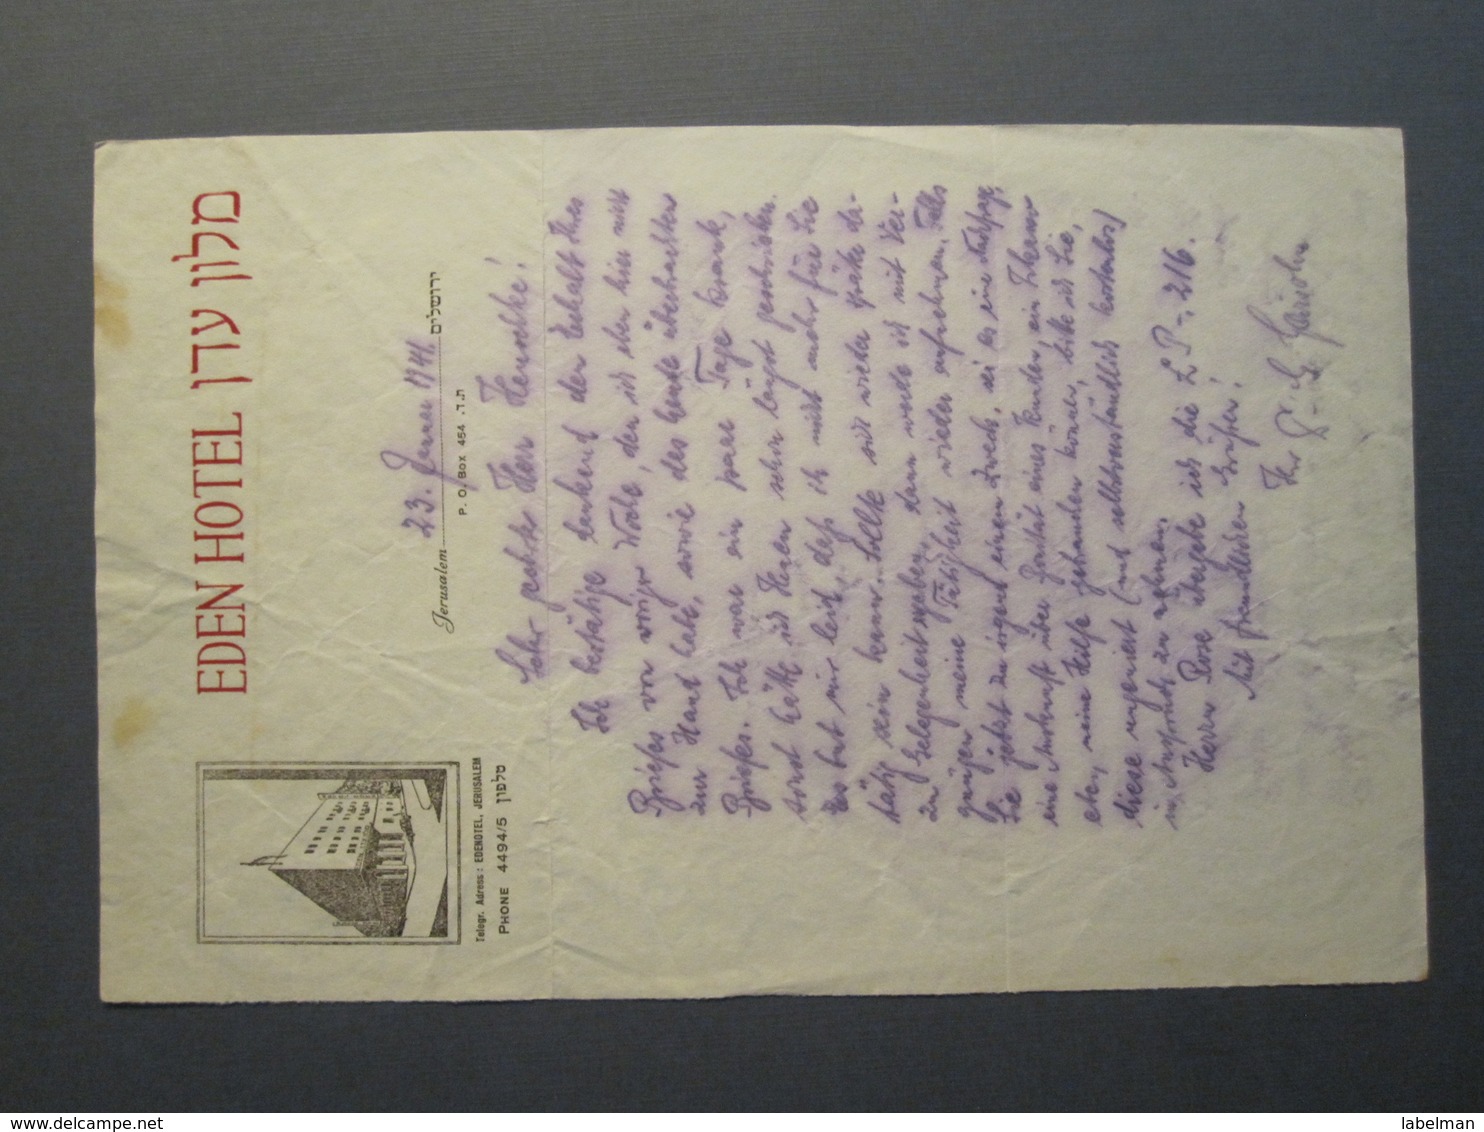 EDEN HOTEL מלון עדן
Telegr. Adress: EDENOTEL, JERUSALEM
PHONE 4494/5 טלפון
Jerusalem 23. Januar 1941 ירושלים
P. O. Box 454 ת.ד.
Sehr geehrter Herr
Ich bestätige dankend den Erhalt Ihres
Briefes von voriger Woche, den ich aber hier nicht
zur Hand habe, sowie des heute überbrachten
Briefes. Ich war ein paar Tage krank,
sonst hätte ich Ihnen schon längst geschrieben.
Es tut mir leid, dass ich nicht mehr für Sie
tätig sein kann. Sollte sich wieder später da-
zu Gelegenheit ergeben, dann werde ich mit Ver-
gnügen meine Tätigkeit wieder aufnehmen. Falls
Sie jetzt zu irgend einem Zweck, sei es eine Anfrage,
eine Auskunft über Bonität eines Kunden, ein
etc., meine Hilfe gebrauchen können, bitte ich Sie,
diese ungeniert (und selbstverständlich kostenlos)
in Anspruch zu nehmen.
Herrn Rose übergebe ich die £P -.216.
Mit freundlichen Grüßen!
Ihr
labelman